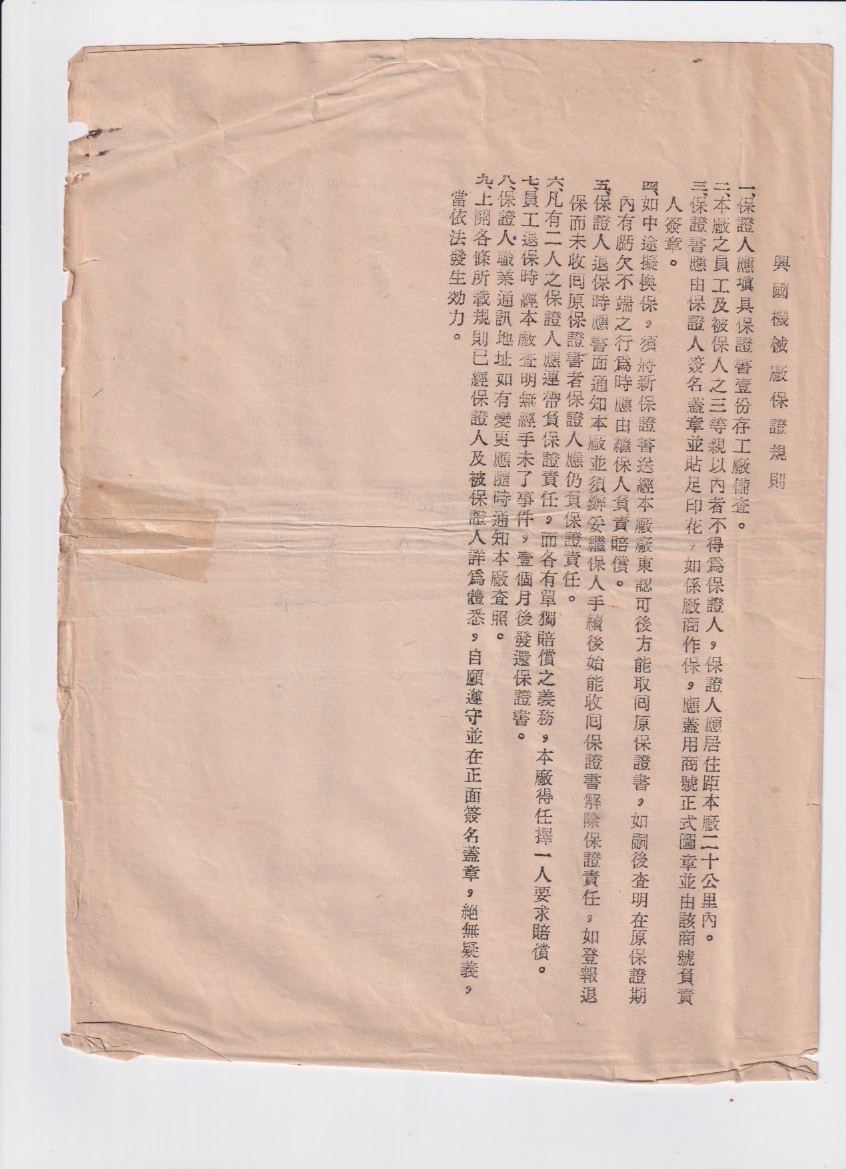 興國機械廠保證規則
一、保證人應填具保證書壹份存工廠備查。
二、本廠之員工及被保人之三等親以內者不得爲保證人，保證人應居住距本廠二十公里內。
三、保證書應由保證人簽名蓋章並貼足印花，如係廠商作保，應蓋用商號正式圖章並由該商號負責
人簽章。
四、如中途擬換保，須將新保證書送經本廠廠東認可後方能取囘原保證書，如嗣後查明在原保證期
內有虧欠不端之行爲時應由繼保人負責賠償。
五、保證人退保時應書面通知本廠並須辦妥繼保人手續後始能收囘保證書解除保證責任，如登報退
保而未收囘原保證書者保證人應仍負保證責任。
六、凡有二人之保證人應連帶負保證責任，而各有單獨賠償之義務，本廠得任擇一人要求賠償。
七、員工退保時經本廠查明無經手未了事件，壹個月後發還保證書。
八、保證人職業通訊地址如有變更應隨時通知本廠查照。
九、上開各條所載規則已經保證人及被保證人詳爲體悉，自願遵守並在正面簽名蓋章，絕無疑義，
當依法發生効力。